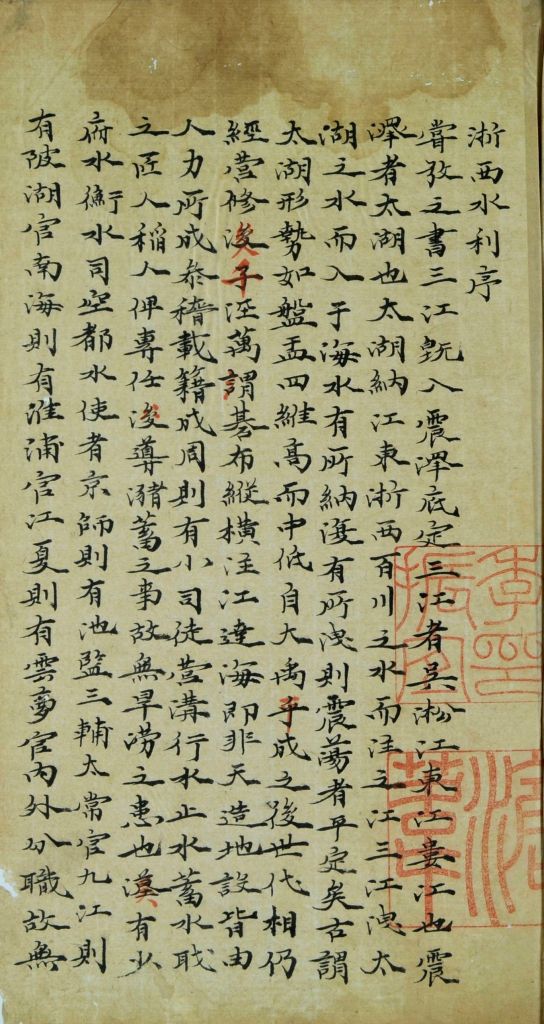 浙西水利序
嘗攷之書三江旣入震澤底定三江者吳淞江東江婁江也震
澤者太湖也太湖納江東浙西百川之水而注之江三江洩太
湖之水而入于海水有所納復有所洩則震蕩者平定矣古謂
太湖形勢如盤盂四維高而中低自大禹手成之後世代相仍
經營修浚千涇萬謂碁布縱橫注江達海即非天造地設皆由
人力所成叅稽載籍成周則有小司徒營溝行水止水蓄水戝
之匠人稻人俾專任浚導潴蓄之事故無旱澇之患也漢有少
府水衡水司空都水使者京師則有池監三輔太常官九江則
有陂湖官南海則有淮浦官江夏則有雲夢官内外分職故無
季印振宜
滄葦